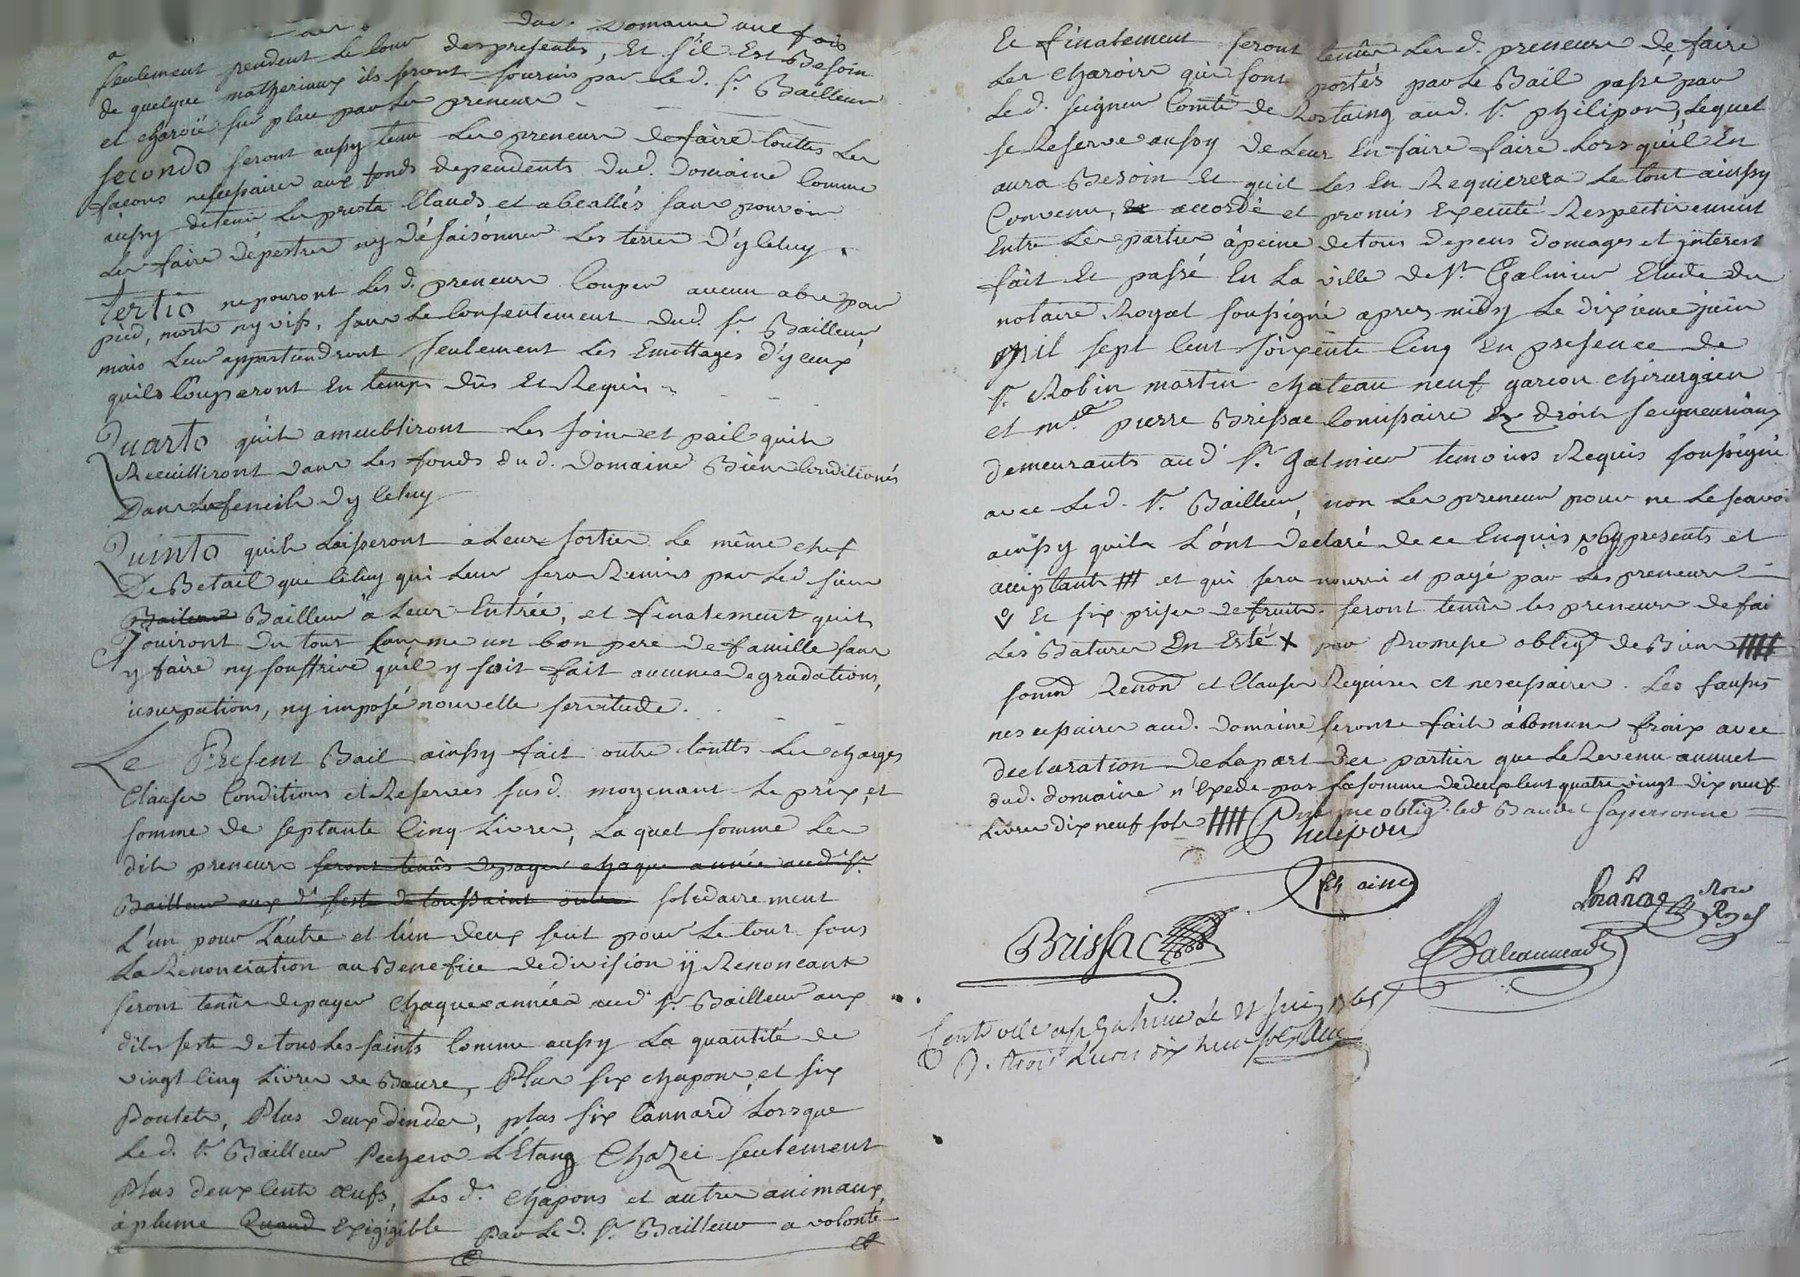 dud. Domaine une fois
seulement pendent le cour des presentes, Et s'il Est Besoin
de quelque matheriaux ils seront fournis par led. Sr. Bailleur
et charoié sur place par les preneurs
Secondo seront aussy tenu les preneurs de faire touttes les
facons nessessaires aux fonds dependents dud. Domaine Comme
aussy de tenir les prets Clauds et abeallés sans pouvoir
les faire dépestrer ny défaisónner les terres d'yceluy.
Tertio ne pouront les d. preneurs Couper aucun abre par
pied, morts ny vifs, sans le Consentement dud. Sr. Bailleur,
mais leur appartiendront seulement les Emottages d'yceux
quils Couperont En temps dûs Et Requis
Quarto qu'ils ameubliront les foins et pail quils
Recuilliront dans les fonds dud. Domaine Bien Conditionés
Dans le fenich dyceluy
Quinto quils laisseront a leur sortie le même chef
De Betail que Celuy qui leur sera Remis par led. sieur
Bailleur Bailleur a leur Entrée, et finalement quils
Jouiront du tout Comme un bon pere de famille sans
y faire ny souffrire qu'il y soit fait aucunes degradations,
usurpations, ny imposé nouvelle servitude.
Le Present Bail ainssy fait outre touttes les charges
Clauses Conditions et Reserves susd. moyenant le prix et
somme de septante Cinq Livres, laquel somme les
dits preneurs seront tenûs de payer chaque année aud. Sr.
Bailleur aux d. feste de toussaint outre solidairement
L'un pour L'autre et l'un deux seul pour le tout sous
la Renonciation au Benefice de division ÿ Renoncant
seront tenûs de payer chaques années aud. Sr. Bailleur aux
dites feste de tous les saints Comme aussy la quantité de
vingt Cinq Livres de Beure, Plus six chapons et six
Poulets, Plus deux dindes, plus six Cannard Lorsque
Led. Sr. Bailleur Pechera L'Etang Chazei seulement
Plus deux Cents œufs, les d. chapons et autres animaux
à plume Quand Exigigible Par Le d. Sr. Bailleur a volonté
Et finalement seront tenûs les d. preneurs de faire
Les Charois qui sont portés par le Bail passé par
Le d. seigneur Comte de Rostaing aud. Sr. philipon, Lequel
se Reserve aussy de leur En faire faire Lorsqu'il En
aura Besoin Et quil les En Requierera Le tout ainssy
Convenu, Et accordé et promis Executé Respectivement
Entre les parties à peine de tous depens domages et ÿnterest
fait Et passé En La ville de St. Galmier Etude du
notaire Royal soussigné apres midy Le dixieme juin
mil sept Cent soixente Cinq En presence de
Sr. Robin martin chateau neuf garcon chirurgien
et me. pierre Brissac Comissaire Es droits seigneuriaux
demeurants aud. St. Galmier temoins Requis soussigné
avec Led. Sr. Bailleur, non Les preneurs pour ne Lescavoir
ainssy quils L'ónt declaré de ce Enquis presents et
acciptants et qui sera nourri et payé par les preneurs
Et six prises de fruits seront tenûs les preneurs de fai
Les Batures En Esté X par Promesse obligd. de Biens
soumd Renond et Clauses Requises et nescessaires. Les
nescessaires aud. domaine seronts fait à Comuns froix avec
declaration de la part des parties que Le Revenu annuel
dud. domaine n'Exede pas la somme de deux Cent quatre vingt dix neuf
Livres dix neuf sols
Philipon
Brissac
Not. Royal
Contrôlé a St Galmier le 21 juin 1765
R. trois Livres dix neuf sols